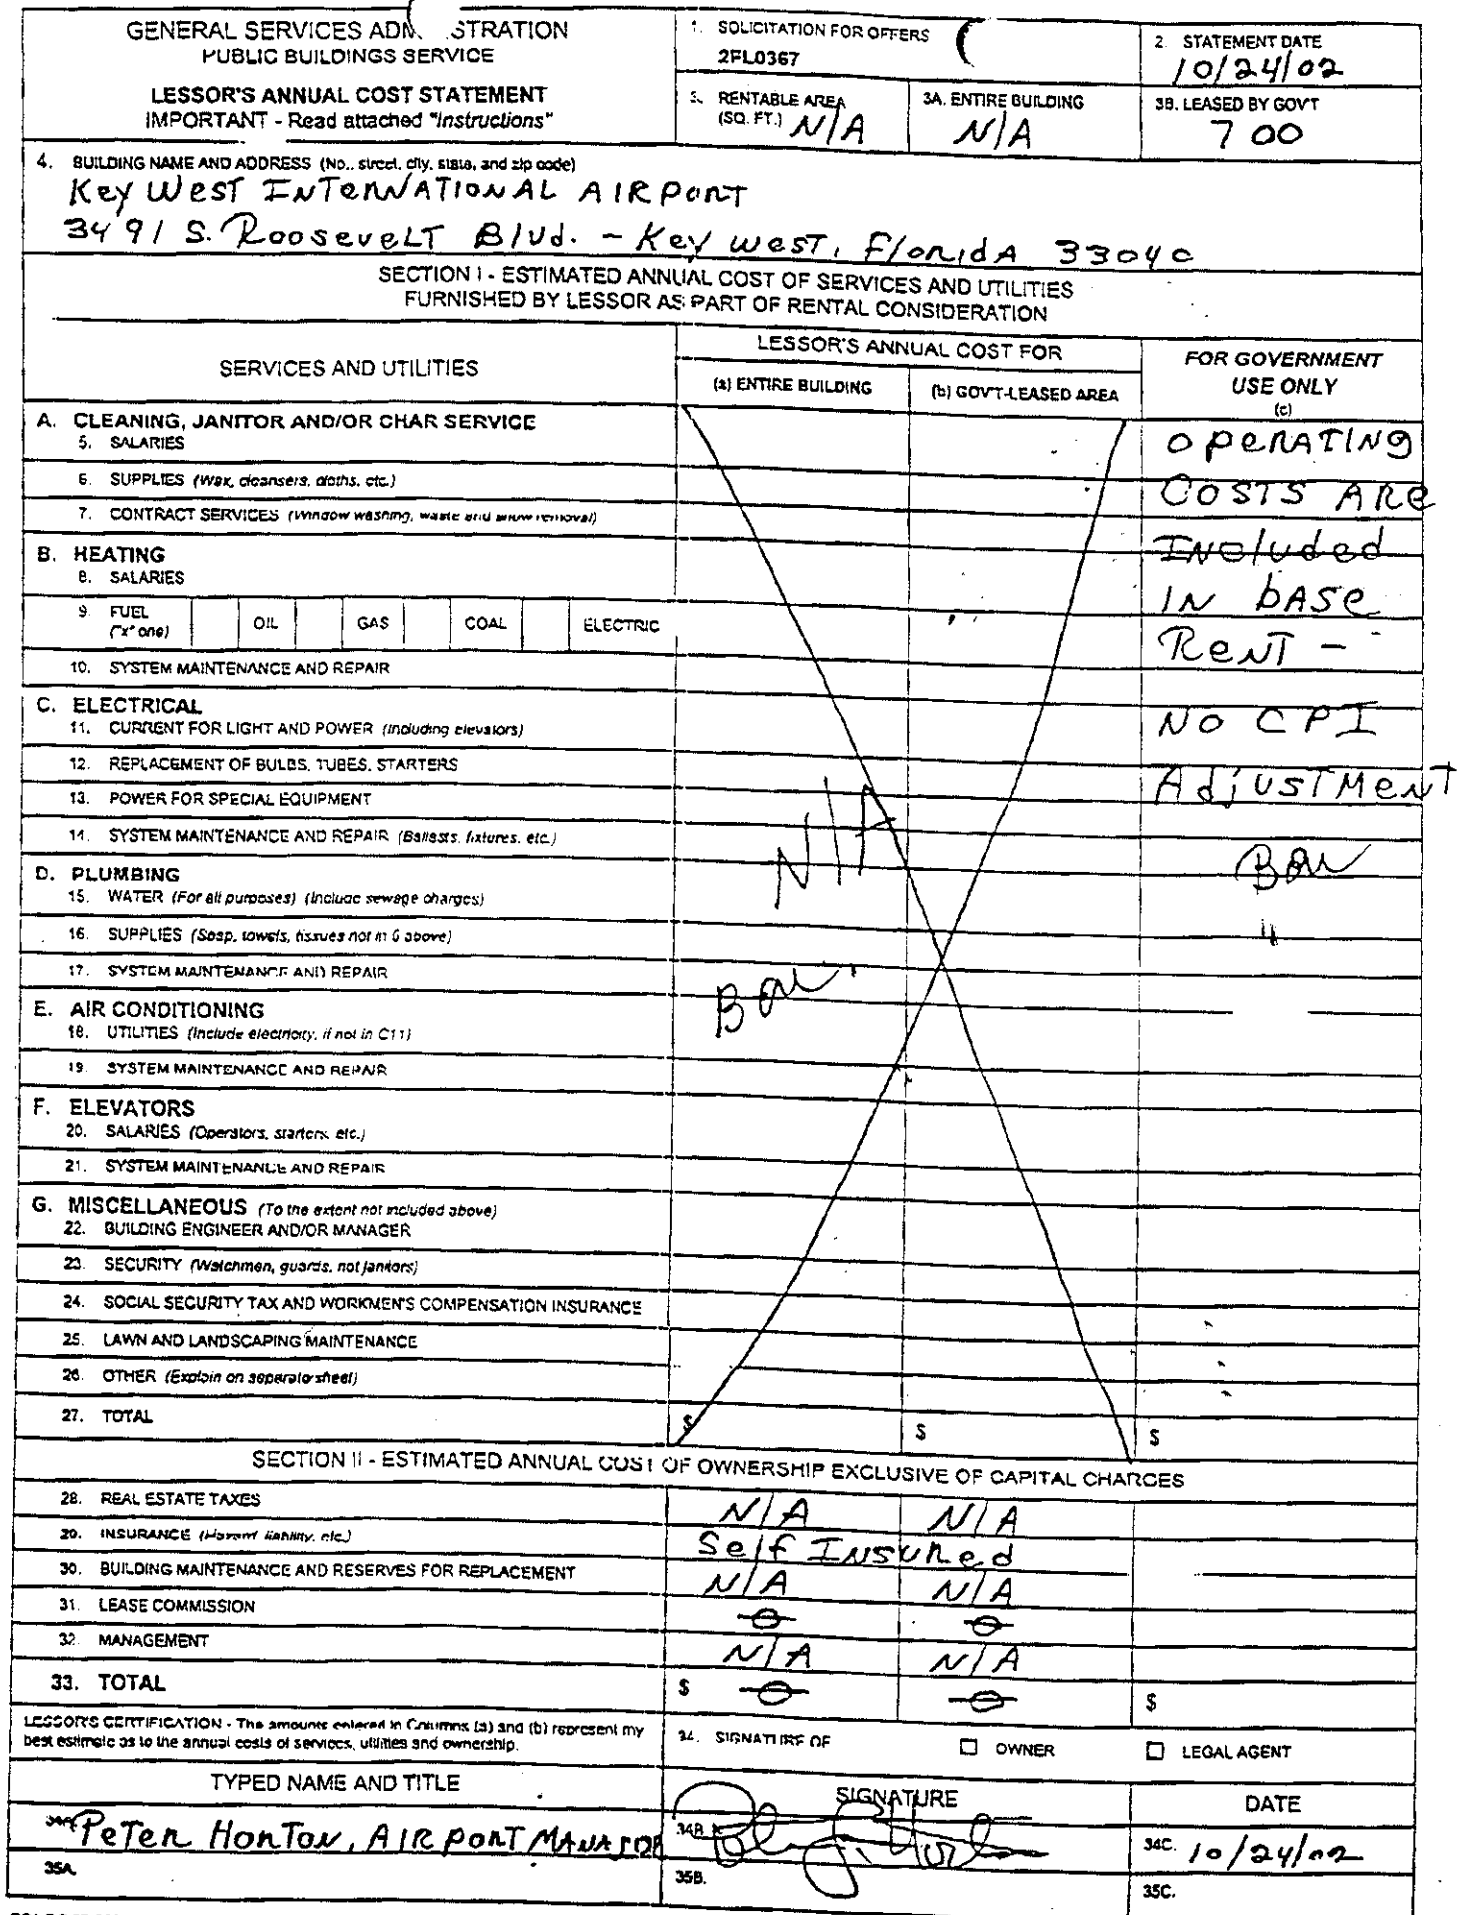 GENERAL SERVICES ADM STRATION
PUBLIC BUILDINGS SERVICE
LESSOR'S ANNUAL COST STATEMENT
IMPORTANT - Read attached "Instructions"
1. SOLICITATION FOR OFFERS
2FL0367
2. STATEMENT DATE
10/24/02
3. RENTABLE AREA
(SQ. FT.) N/A
3A. ENTIRE BUILDING
N/A
3B. LEASED BY GOVT
700
4. BUILDING NAME AND ADDRESS (No., street, city, state, and zip code)
Key West International Airport
3491 S. Roosevelt Blvd. - Key West, Florida 33040
SECTION I - ESTIMATED ANNUAL COST OF SERVICES AND UTILITIES
FURNISHED BY LESSOR AS PART OF RENTAL CONSIDERATION
SERVICES AND UTILITIES
LESSOR'S ANNUAL COST FOR
(a) ENTIRE BUILDING
(b) GOV'T-LEASED AREA
FOR GOVERNMENT
USE ONLY
(c)
A. CLEANING, JANITOR AND/OR CHAR SERVICE
5. SALARIES
6. SUPPLIES (Wax, cleansers, cloths, etc.)
7. CONTRACT SERVICES (Window washing, waste and snow removal)
B. HEATING
8. SALARIES
9. FUEL
("x" one)
OIL
GAS
COAL
ELECTRIC
10. SYSTEM MAINTENANCE AND REPAIR
C. ELECTRICAL
11. CURRENT FOR LIGHT AND POWER (Including elevators)
12. REPLACEMENT OF BULBS, TUBES, STARTERS
13. POWER FOR SPECIAL EQUIPMENT
14. SYSTEM MAINTENANCE AND REPAIR (Ballasts, fixtures, etc.)
D. PLUMBING
15. WATER (For all purposes) (Include sewage charges)
16. SUPPLIES (Soap, towels, tissues not in 6 above)
17. SYSTEM MAINTENANCE AND REPAIR
E. AIR CONDITIONING
18. UTILITIES (Include electricity, if not in C11)
19. SYSTEM MAINTENANCE AND REPAIR
F. ELEVATORS
20. SALARIES (Operators, starters, etc.)
21. SYSTEM MAINTENANCE AND REPAIR
G. MISCELLANEOUS (To the extent not included above)
22. BUILDING ENGINEER AND/OR MANAGER
23. SECURITY (Watchmen, guards, not janitors)
24. SOCIAL SECURITY TAX AND WORKMEN'S COMPENSATION INSURANCE
25. LAWN AND LANDSCAPING MAINTENANCE
26. OTHER (Explain on separate sheet)
27. TOTAL
$
$
$
N/A
Operating
Costs Are
Included
in base
Rent -
No CPI
Adjustment
SECTION II - ESTIMATED ANNUAL COST OF OWNERSHIP EXCLUSIVE OF CAPITAL CHARGES
28. REAL ESTATE TAXES N/A N/A
29. INSURANCE (Hazard, liability, etc.) Self Insured
30. BUILDING MAINTENANCE AND RESERVES FOR REPLACEMENT N/A N/A
31. LEASE COMMISSION 0 0
32. MANAGEMENT N/A N/A
33. TOTAL $ 0 0 $
LESSOR'S CERTIFICATION - The amounts entered in Columns (a) and (b) represent my
best estimate as to the annual costs of services, utilities and ownership.
34. SIGNATURE OF
OWNER
LEGAL AGENT
TYPED NAME AND TITLE
SIGNATURE
DATE
Peter Horton, Airport Manager
34B.
34C. 10/24/02
35A.
35B.
35C.